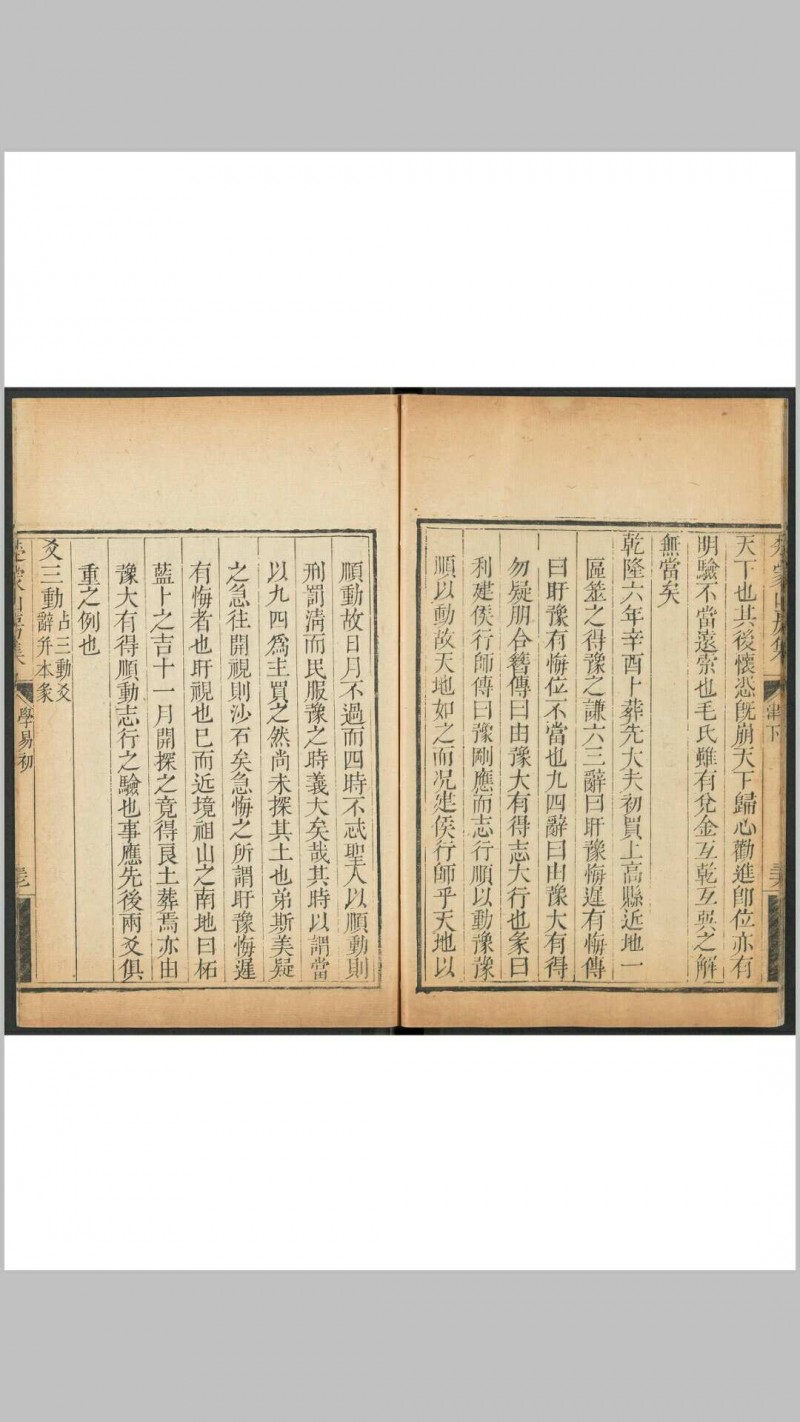 天下也其後懷愍既崩天下歸心勸進即位亦有
明驗不當遠索也毛氏雖有兌金互乾互巽之解
無當矣
乾隆六年辛酉卜葬先大夫初買上高縣近地一
區筮之得豫之謙六三辭曰盱豫悔遲有悔傳
曰盱豫有悔位不當也九四辭曰由豫大有得
勿疑朋合簪傳曰由豫大有得志大行也彖曰
利建侯行師傳曰豫剛應而志行順以動豫豫
順以動故天地如之而况建侯行師乎天地以
順動故日月不過而四時不忒聖人以順動則
刑罰清而民服豫之時義大矣哉其時以謂當
以九四爲主買之然尚未探其土也弟斯美疑
之急往開視則沙石矣急悔之所謂盱豫悔遲
有悔者也盱視也已而近境祖山之南地曰柘
藍卜之吉十一月開探之竟得良土葬焉亦由
豫大有得順動志行之驗也事應先後兩爻俱
重之例也
爻三動占三動爻
辭并本彖
學易初